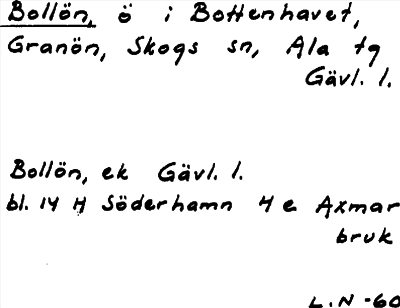 Bollön, ö i Bottenhavet,
Granön, Skogs sn, Ala tg
Gävl. l.
Bollön, ek Gävl. l.
bl. 14 H Söderhamn 4 e Axmar
bruk
L.N -60